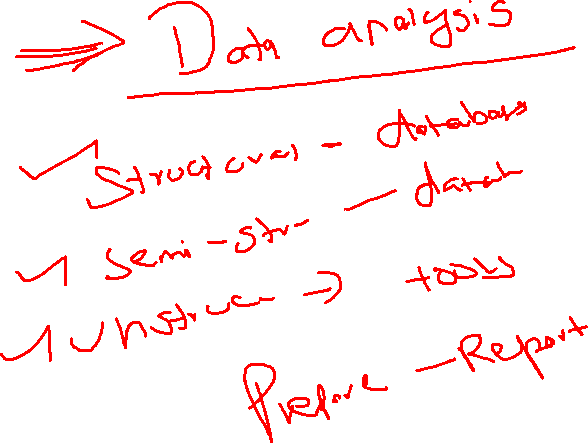 ⇒ Data analysis
✓ Structural - database
✓ Semi-str - datab
✓ Unstruc → tools
Prepare - Report